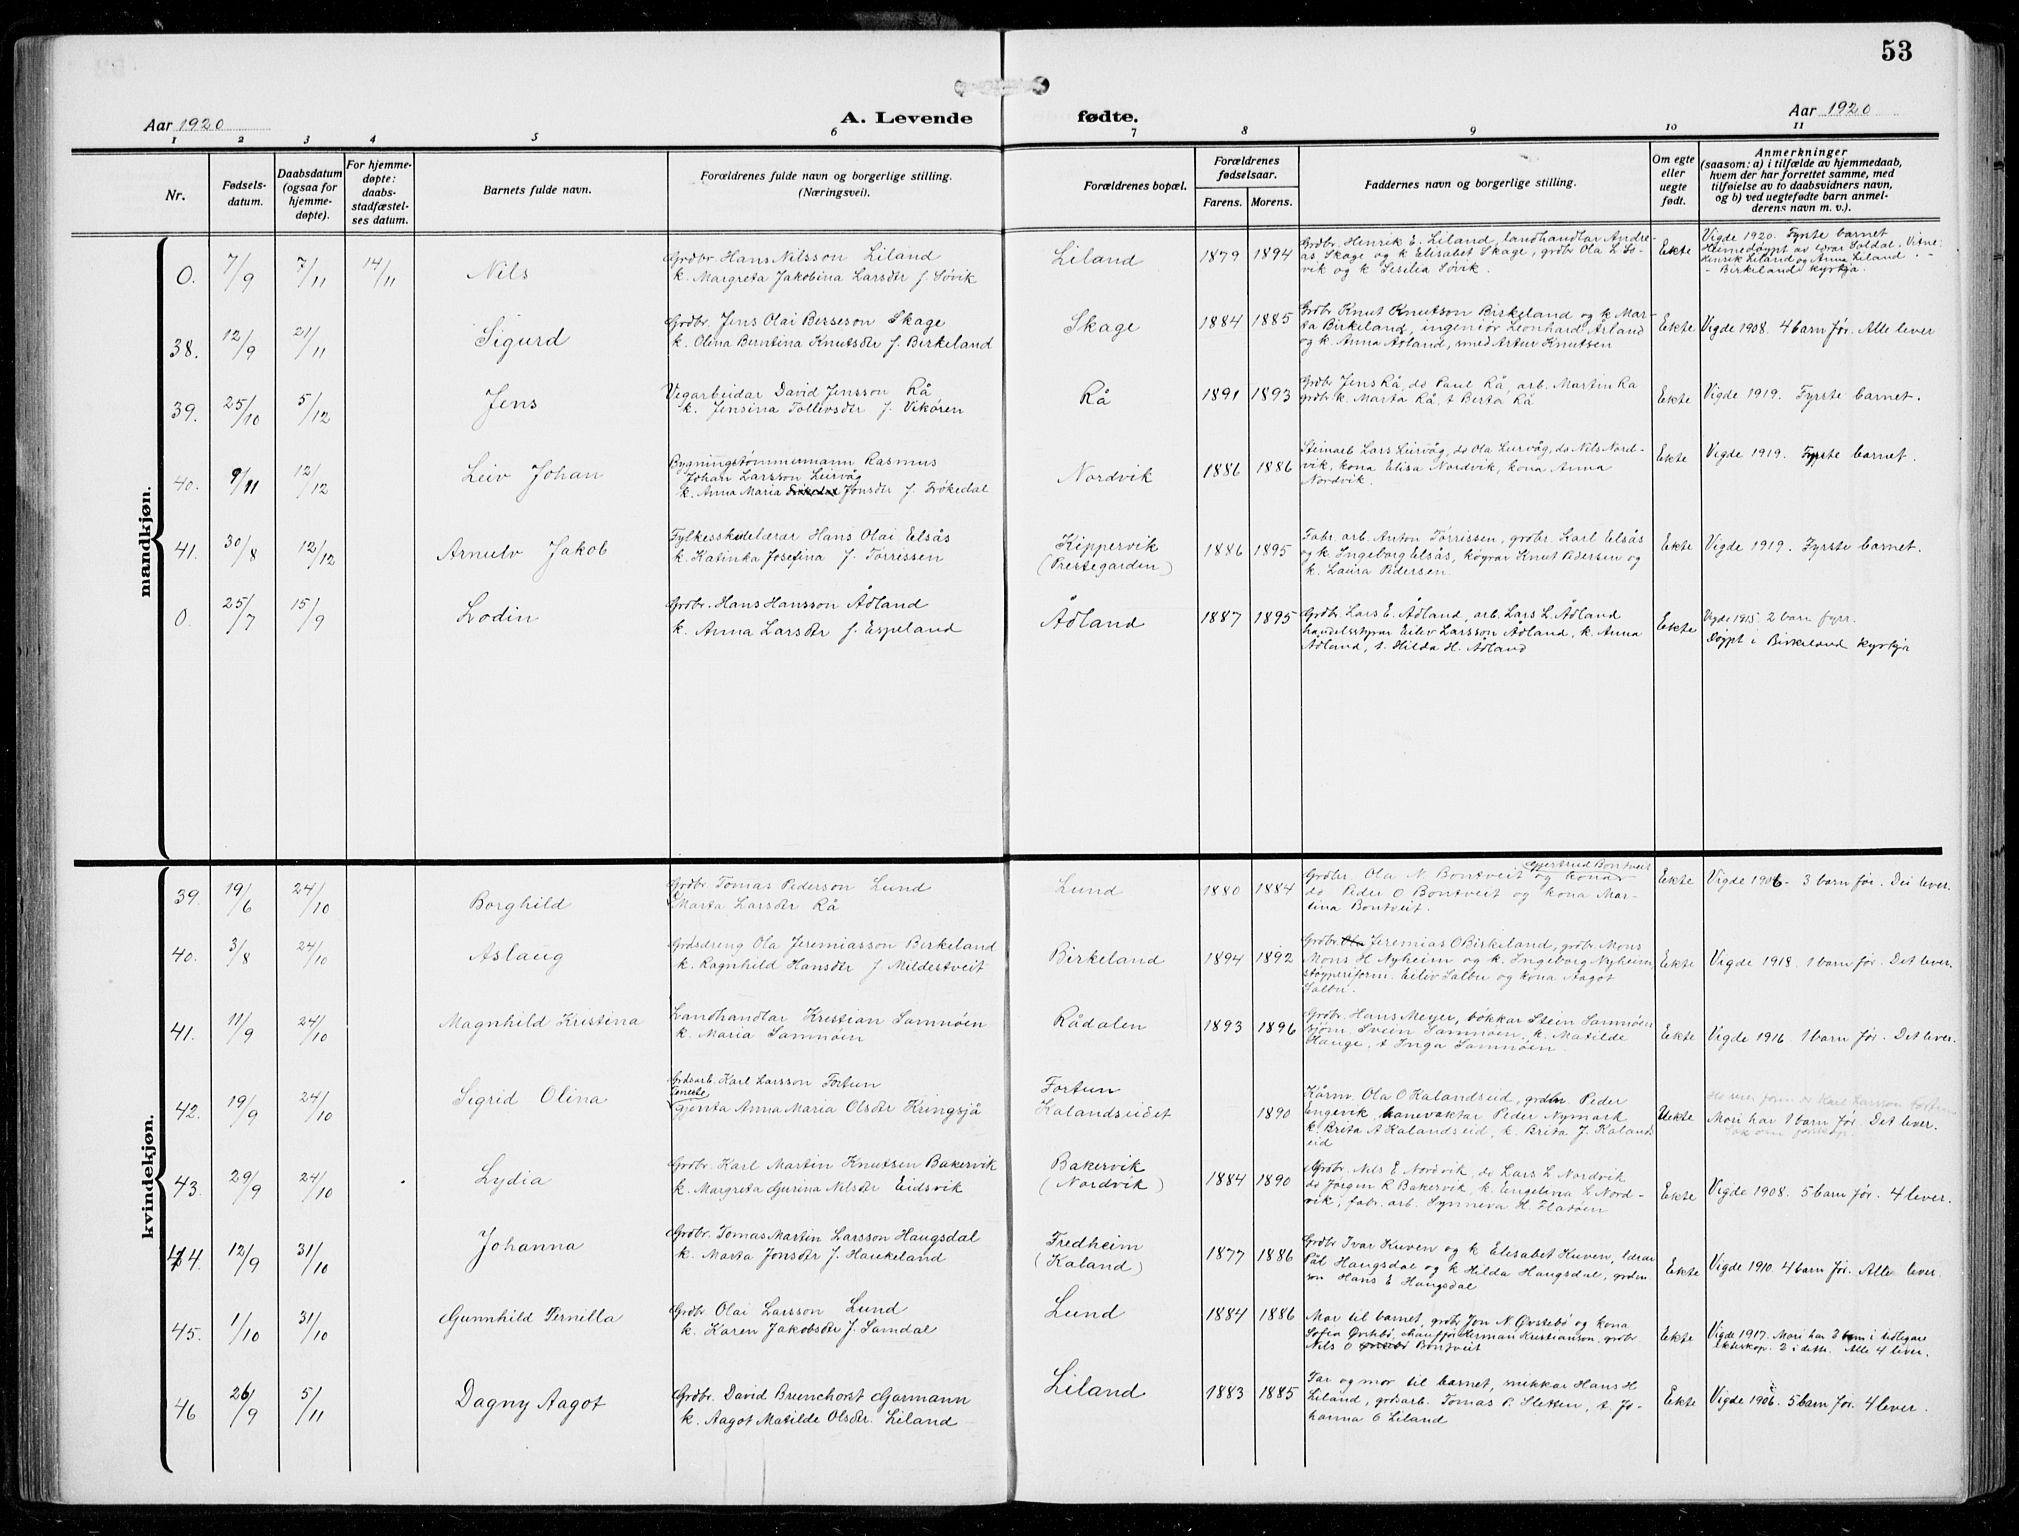 53
Aar 1920
A. Levende
fødte.
Aar 1920
1 2 3 4 5 6 7 8 9 10 11
Nr.
Fødsels-
datum.
Daabsdatum
(ogsaa for
hjemme-
døpte).
For hjemme-
døpte:
daabs-
stadfæstel-
ses datum.
Barnets fulde navn.
Forældrenes fulde navn og borgerlige stilling.
(Næringsvei).
Forældrenes bopæl.
Forældrenes
fødselsaar.
Farens. Morens.
Faddernes navn og borgerlige stilling.
Om egte
eller
uegte
født.
Anmerkninger
(saasom: a) i tilfælde av hjemmedaab,
hvem der har forrettet samme, med
tilføielse av to daabsvidners navn,
og b) ved uegtefødte barn anmel-
derens navn m. v.).
mandkjøn.
0. 7/9 7/11 14/11 Nils
Grdbr Hans Nilsson Liland
k. Margreta Jakobina Larsdtr f. Søvik
Liland 1879 1894
Grdbr. Henrik E. Liland, landhandlar Andre-
as Skage og k Elisabet Skage, grdbr Ola L Sø-
vik og k Sesilia Søvik.
Ekte
Vigde 1920. Fyrste barnet
Heimedøypt av lærar Soldal. Vitne:
Henrik Liland og Anna Liland.
Birkeland kyrkja.
38. 12/9 21/11 Sigurd
Grdbr. Jens Olai Berseson Skage
k. Olina Berntina Knutsdtr f. Birkeland
Skage 1884 1885
Grdbr Knut Knutson Birkeland og k Mar-
ta Birkeland, ingeniør Leonhard Årland
og k. Anna Årland, smed Artur Knutsen
Ekte Vigde 1908. 4 barn før. Alle lever
39. 25/10 5/12 Jens
Vegarbeidar David Jensson Rå
k. Jensina Tollevsdtr f. Vikøren
Rå 1891 1893
Grdbr Jens Rå, do Paul Rå, arb. Martin Rå
grdbr k. Marta Rå, t Berta Rå
Ekte Vigde 1919. Fyrste barnet.
40. 9/11 12/12 Leiv Johan
Bygningstømmermann Rasmus
Johan Larsson Leirvåg
k. Anna Maria Jonsdtr f. Trøkedal
Nordvik 1886 1886
Steinarb Lars Leirvåg, do Ola Leirvåg, do Nils Nord-
vik, kona Elisa Nordvik, kona Anna
Nordvik.
Ekte Vigde 1919. Fyrste barnet.
41. 30/8 12/12 Arnulv Jakob
Fylkesskulelærar Hans Olai Elsås
k. Katinka Josefina f. Torrissen
Kippervik
(Prestegarden)
1886 1895
Fabr. arb. Anton Torrissen, grdbr. Karl Elsås
og k. Ingeborg Elsås, køgrar Knut Pedersen og
k. Laura Pedersen.
Ekte Vigde 1919. Fyrste barnet.
0. 25/7 15/9 Lodin
Grdbr. Hans Hansson Ådland
k. Anna Larsdtr f. Espeland
Ådland 1887 1895
Grdbr. Lars E. Ådland, arb. Lars L. Ådland
handelsstyrar Eilev Larsson Ådland, k. Anna
Ådland, t. Hilda H. Ådland
Ekte
Vigde 1915. 2 barn fyrr.
Døypt i Birkeland kyrkja
kvindekjøn.
39. 19/6 24/10 Borghild
Grdbr. Tomas Pederson Lund
Marta Larsdtr Rå
Lund 1880 1884
Gjertrud Bontveit
Grdbr. Ola N Bontveit og kona
do Peder O Bontveit og kona Mar-
tina Bontveit.
Ekte Vigde 1906 - 3 barn før. Dei lever.
40. 3/8 24/10 Aslaug
Grdsdreng Ola Jeremiasson Birkeland
k. Ragnhild Hansdtr f Mildestveit
Birkeland 1894 1892
Grdbr. Ola Jeremias O Birkeland, grdbr. Mons
Mons H Nyheim og k. Ingeborg Nyheim
støyperiform. Eiliv Salbu og kona Aagot
Salbu.
Ekte Vigde 1918. 1 barn før. Det lever.
41. 11/9 24/10 Magnhild Kristina
Landhandlar Kristian Samnøen
k. Maria Samnøen
Rådalen 1893 1896
Grdbr. Hans Meyer, bøkkar Stein Samnøen
sjøm. Svein Samnøen, k. Matilde
Hauge, t Inga Samnøen.
Ekte Vigde 1916. 1 barn før. Det lever.
42. 19/9 24/10 Sigrid Olina
Grdsarb. Karl Larsson Fortun
Teneste
gjenta Anna Maria Olsdtr Kringsjå
Fortun
Kalandseidet
1890
Kårm. Ola O Kalandseid, grdbr. Peder
Engevik, banevaktar Peder Nymark
k. Brita A Kalandseid, k. Brita J. Kaland-
seid
Uekte
Mori har 1 barn før. Det lever.
43. 29/9 24/10 Lydia
Grdbr. Karl Martin Knutsen Bakervik
k. Margreta Gurina Nilsdtr Eidsvik
Bakervik
(Nordvik)
1884 1890
Grdbr. Nils E Nordvik, do Lars L Nordvik
do Jørgen R Bakervik, k. Engelina L Nord-
vik, fabr. arb. Synneva H. Fladøen
Ekte Vigde 1908. 5 barn før. 4 lever.
44. 12/9 31/10 Johanna
Grdbr. Tomas Martin Larsson Haugsdal
k. Marta Jonsdtr f. Haukeland
Fredheim
(Kaland)
1877 1886
Grdbr Ivar Kuven og k Elisabet Kuven, lærar
Pål Haugsdal og k Hilda Haugsdal, garden-
son Hans E Haugsdal
Ekte Vigde 1910. 4 barn før. Alle lever.
45. 1/10 31/10 Gunnhild Pernilla
Grdbr Olai Larsson Lund
k. Karen Jakobsdtr f. Samdal
Lund 1884 1886
Mor til barnet, grdbr Jon N Øvstebø og kona
Sofia Øvstebø, chauffør Herman Kristianson, grdbr
Nils O Bontveit
Ekte
Vigde 1917. Mori har 3 barn i tidlegare
ekteskap. 2 i dette. Alle 4 lever.
46 26/9 5/11 Dagny Aagot
Grdbr. David Brunchorst Garmann
k. Aagot Matilde Olsdtr. Liland
Liland 1883 1885
Far og mor til barnet, snikkar Hans H
Liland, grdsarb. Tomas P. Sletten, t. Jo-
hanna O Liland
Ekte Vigde 1906. 5 barn før. 4 lever.